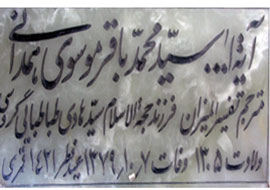 آیة ا... سید محمد باقر موسوی همدانی
مترجم تفسیر المیزان فرزند حجة الاسلام سید هادی طباطبائی گروسی
ولادت ۱۳۰۵ وفات ۱۰/۷/ ۱۳۷۹ عید فطر ۱۴۲۱ قمری